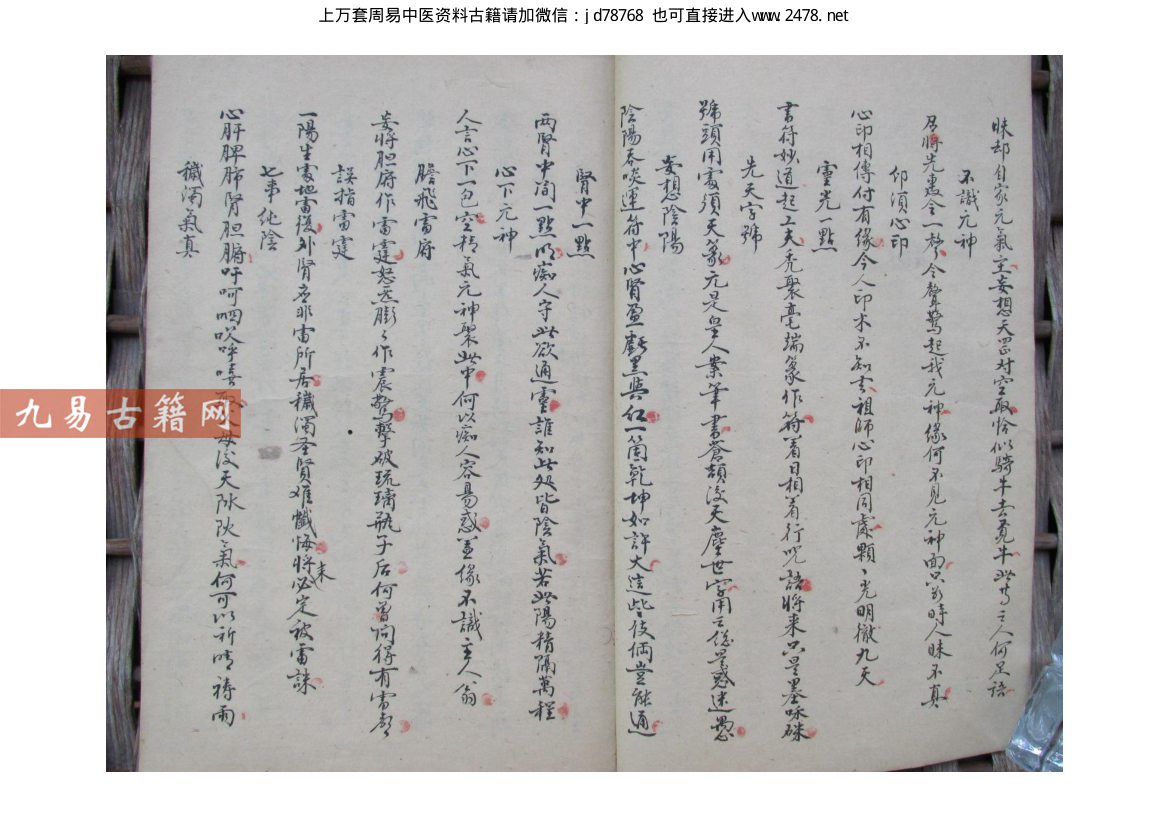 上万套周易中医资料古籍请加微信：jd78768 也可直接进入www.2478.net
昧却自家元氣主妄想天罡对空取恰似騎牛去覓牛此等之人何足語
不識元神
將先惠令一声令聲驚起我元神缘何不見元神面只为時人昧不真
仰須心印
心印相傳付有缘今人印木不知玄祖師心印相同處顆〻光明徹九天
靈光一點
書符妙道起工夫秃聚毫端篆作符着日相着行咒語將来只是墨味硃
先天字號
號頭用處須天篆元是皇人業筆書蒼頡後天塵世字用之総是惑迷愚
妄想陰陽
陰陽吞啖運符中心腎盈虧黑與紅一箇乾坤如許大這些伎倆豈能通
腎中一點
兩腎中间一點明痴人守此欲通靈誰知此处皆陰氣若此陽精隔萬程
心下元神
人言心下一包空精氣元神聚此中何以痴人容易惑盖缘不識主人翁
膽飛雷府
妄將胆府作雷霆怒炁膨〻作震驚擊破琉璃瓶子后何曾问得有雷声
誤指雷霆
一陽生處地雷復外腎喜非雷所居穢濁圣賢难懺悔將来必定被雷誅
七事純陰
心肝脾肺腎胆腑吁呵呬吹呼嘻取父母後天陰陽氣何可以祈晴禱雨
穢濁氣真
九易古籍网